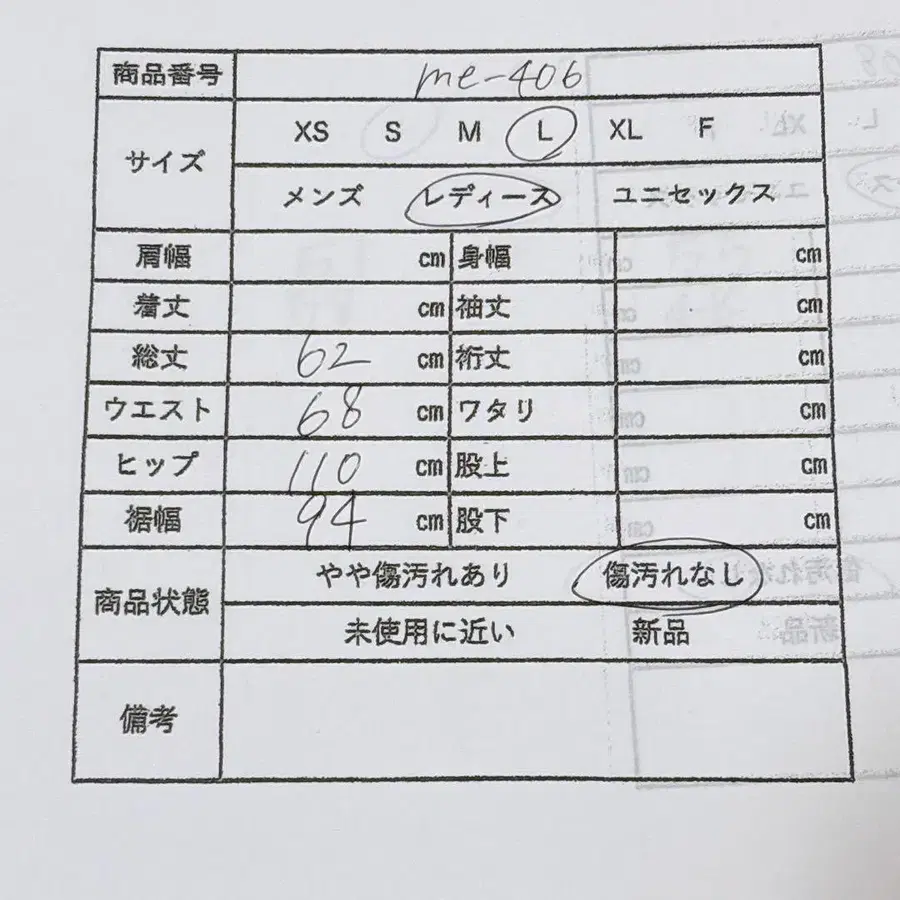 商品番号 me-406
サイズ XS S M L XL F
メンズ レディース ユニセックス
肩幅 cm 身幅 cm
着丈 cm 袖丈 cm
総丈 62 cm 裄丈 cm
ウエスト 68 cm ワタリ cm
ヒップ 110 cm 股上 cm
裾幅 94 cm 股下 cm
商品状態 やや傷汚れあり 傷汚れなし
未使用に近い 新品
備考